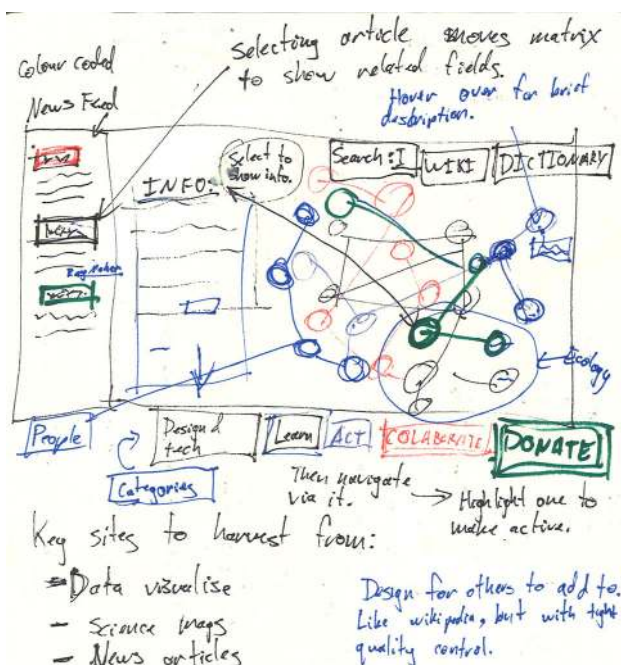 Selecting article moves matrix
to show related fields.
Colour coded
News Feed
Hover over for brief
description.
Select to
show info.
Search: I
WIKI
DICTIONARY
INFO:
Ecology
People
Design &
tech
Learn
ACT
COLABERATE
DONATE
Categories
Then navigate
via it.
Highlight one to
make active.
Key sites to harvest from:
Data visualise
- Science mags
- News articles
Design for others to add to.
Like wikipedia, but with tight
quality control.